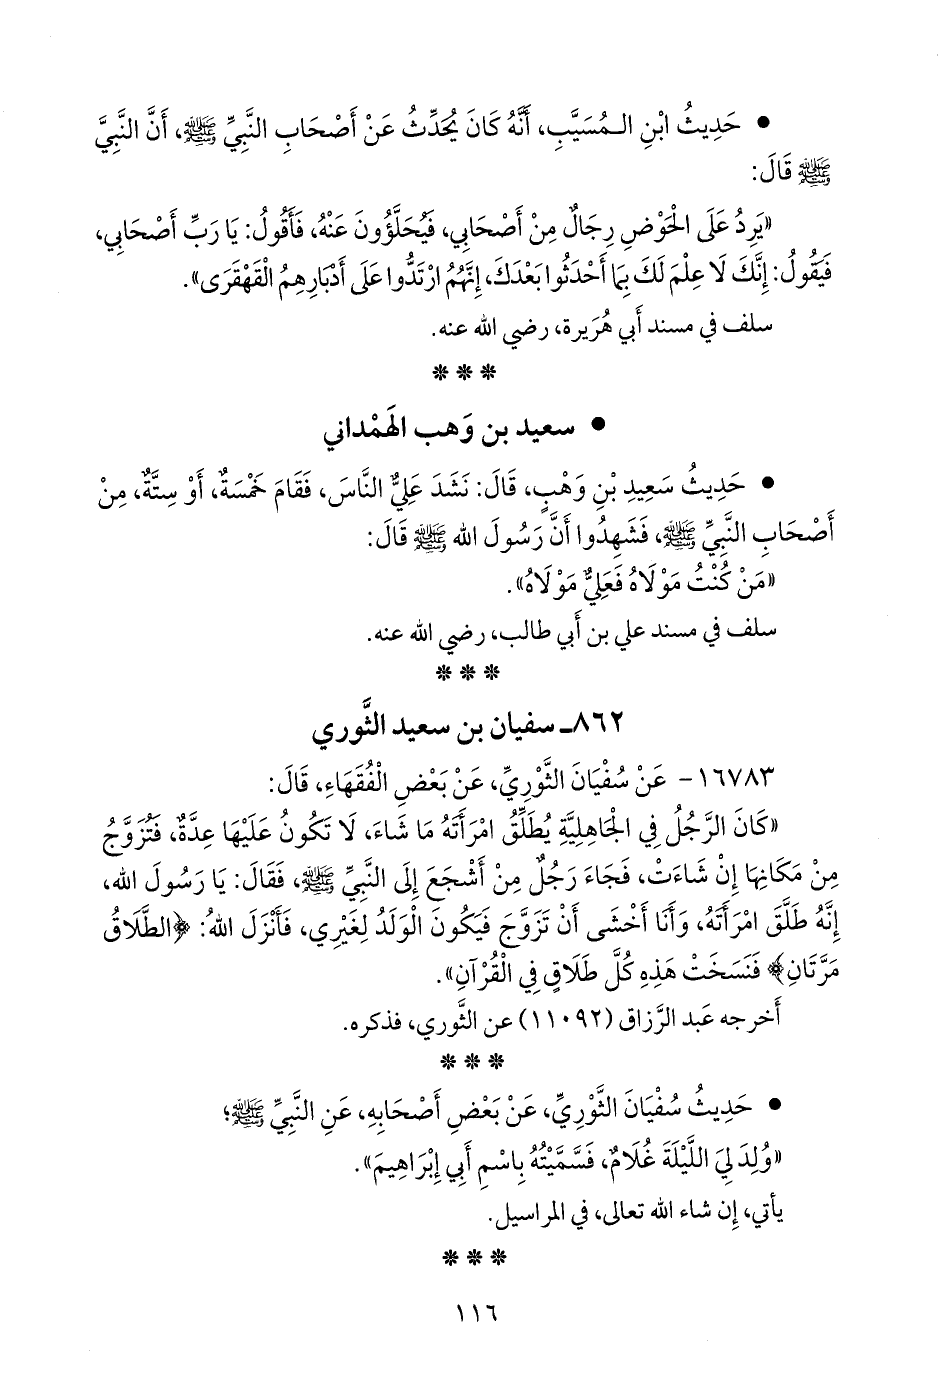 • حَدِيثُ ابْنِ الـمُسَيَّبِ، أَنَّهُ كَانَ يُحَدِّثُ عَنْ أَصْحَابِ النَّبِيِّ ﷺ، أَنَّ النَّبِيَّ
ﷺ قَالَ:
«يَرِدُ عَلَى الْحَوْضِ رِجَالٌ مِنْ أَصْحَابِي، فَيُحَلَّؤُونَ عَنْهُ، فَأَقُولُ: يَا رَبِّ أَصْحَابِي،
فَيَقُولُ: إِنَّكَ لَا عِلْمَ لَكَ بِمَا أَحْدَثُوا بَعْدَكَ، إِنَّهُمُ ارْتَدُّوا عَلَى أَدْبَارِهِمُ الْقَهْقَرَى».
سلف في مسند أَبي هُرَيرة، رضي الله عنه.
* * *
• سعيد بن وَهب الهَمْداني
• حَدِيثُ سَعِيدِ بْنِ وَهْبٍ، قَالَ: نَشَدَ عَلِيٌّ النَّاسَ، فَقَامَ خَمْسَةٌ، أَوْ سِتَّةٌ، مِنْ
أَصْحَابِ النَّبِيِّ ﷺ، فَشَهِدُوا أَنَّ رَسُولَ الله ﷺ قَالَ:
«مَنْ كُنْتُ مَوْلَاهُ فَعَلِيٌّ مَوْلَاهُ».
سلف في مسند علي بن أَبي طالب، رضي الله عنه.
* * *
٨٦٢ـ سفيان بن سعيد الثَّوري
١٦٧٨٣- عَنْ سُفْيَانَ الثَّوْرِيِّ، عَنْ بَعْضِ الْفُقَهَاءِ، قَالَ:
«كَانَ الرَّجُلُ فِي الْجَاهِلِيَّةِ يُطَلِّقُ امْرَأَتَهُ مَا شَاءَ، لَا تَكُونُ عَلَيْهَا عِدَّةٌ، فَتُزَوَّجُ
مِنْ مَكَانِهَا إِنْ شَاءَتْ، فَجَاءَ رَجُلٌ مِنْ أَشْجَعَ إِلَى النَّبِيِّ ﷺ، فَقَالَ: يَا رَسُولَ الله،
إِنَّهُ طَلَّقَ امْرَأَتَهُ، وَأَنَا أَخْشَى أَنْ تَزَوَّجَ فَيَكُونَ الْوَلَدُ لِغَيْرِي، فَأَنْزَلَ اللهُ: ﴿الطَّلَاقُ
مَرَّتَانِ﴾ فَنَسَخَتْ هَذِهِ كُلَّ طَلَاقٍ فِي الْقُرْآنِ».
أَخرجه عَبد الرَّزاق (١١٠٩٢) عن الثَّوري، فذكره.
* * *
• حَدِيثُ سُفْيَانَ الثَّوْرِيِّ، عَنْ بَعْضِ أَصْحَابِهِ، عَنِ النَّبِيِّ ﷺ؛
«وُلِدَ لِيَ اللَّيْلَةَ غُلَامٌ، فَسَمَّيْتُهُ بِاسْمِ أَبِي إِبْرَاهِيمَ».
يأتي، إن شاء الله تعالى، في المراسيل.
* * *
١١٦